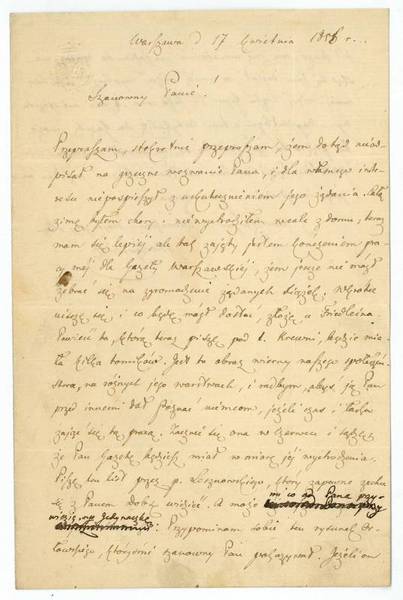 Warszawa d 17 Kwietnia 1856 r.
Szanowny Panie!
Przepraszam, stokrotnie przepraszam, żem dotąd nieod-
pisał na grzeczne wezwanie Pana, i dla własnego inte-
resu niepospieszył z uskutecznieniem jego żądania. Całą
zimę byłem chory i niewychodziłem wcale z domu, teraz
mam się lepiej, ale tak zajęty jestem kończeniem pra-
cy mej dla Gazety Warszawskiej, żem jeszcze nie mógł
zebrać się na zgromadzenie żądanych książek. Wkrótce
uiszczę się, i co będę mógł dostać, złożę u Friedleina
Powieść ta, którą teraz piszę pod t. Krewni, będzie mia-
ła kilka tomików. Jest to obraz wierny naszego społeczeń-
stwa, na różnych jego warstwach, i radbym, abyś ją Pan
przed innemi dał poznać niemcom, jeżeli czas i
zająć się tą pracą. Zacznie się ona w Czerwcu i sądzę
że Pan Gazetę będziesz miał w miarę jej wychodzenia.
Piszę ten list przez p. który zapewne zechce
z Panem dobrze widzieć. A może mi co od Pana przy-
wiezie
Przypominam sobie ten rysunek Or-
łowskiego, któryś szanowny Pan pokazywał. Jeżeli on